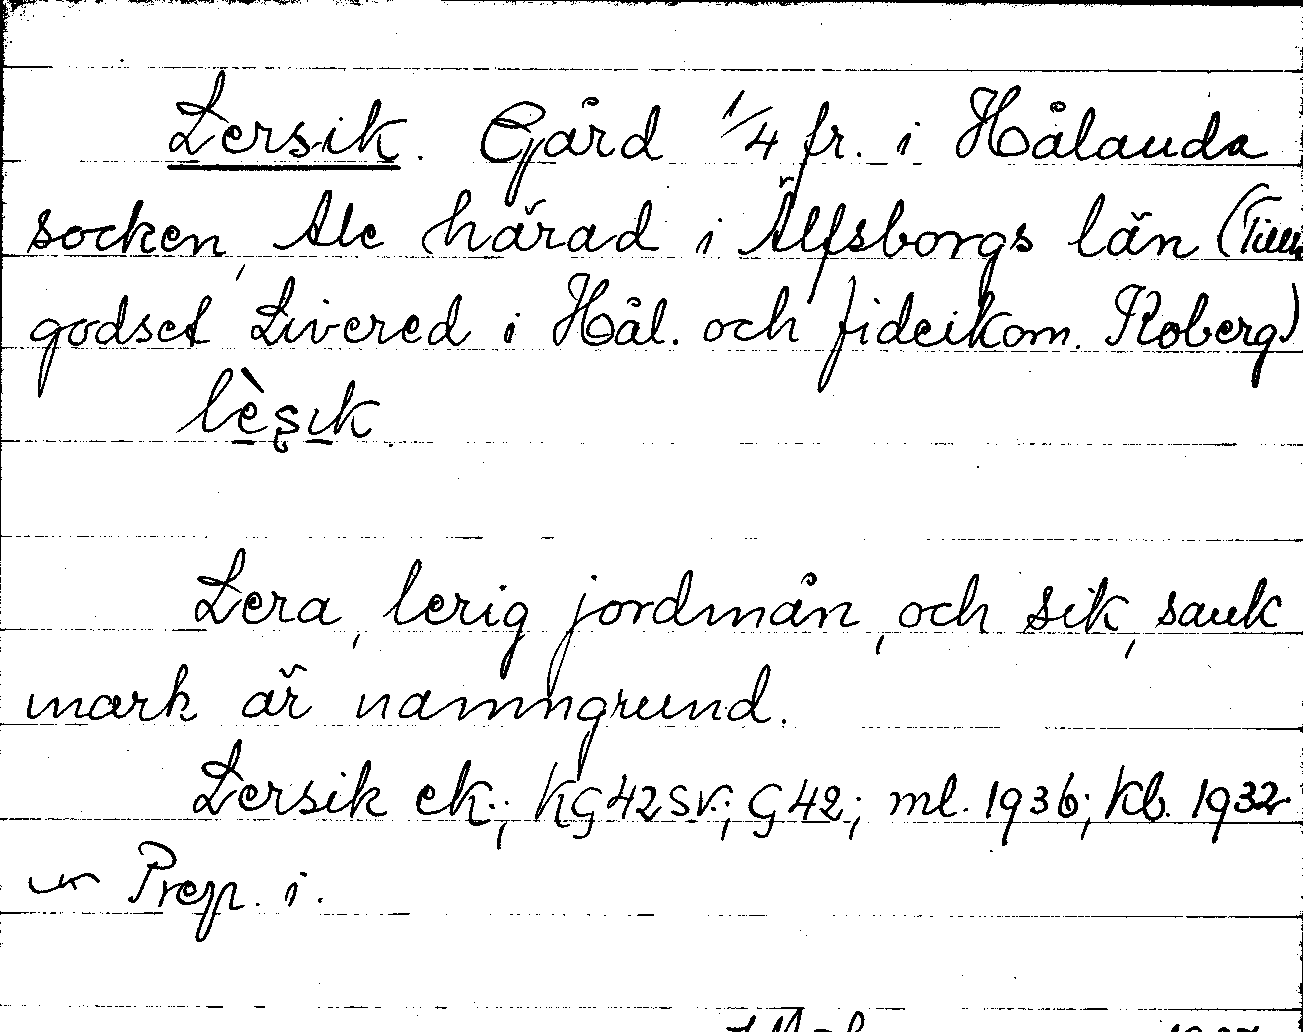 Lersik. Gård 1/4 fr. i Hålanda
socken, Ale härad i Älfsborgs län (Till
godset Livered i Hål. och fideikom. Koberg)
lèʂik
Lera, lerig jordmån, och sik, sank
mark är namngrund.
Lersik ek.; KG42SV.; G42; ml. 1936; Kb. 1932
Prep. i.